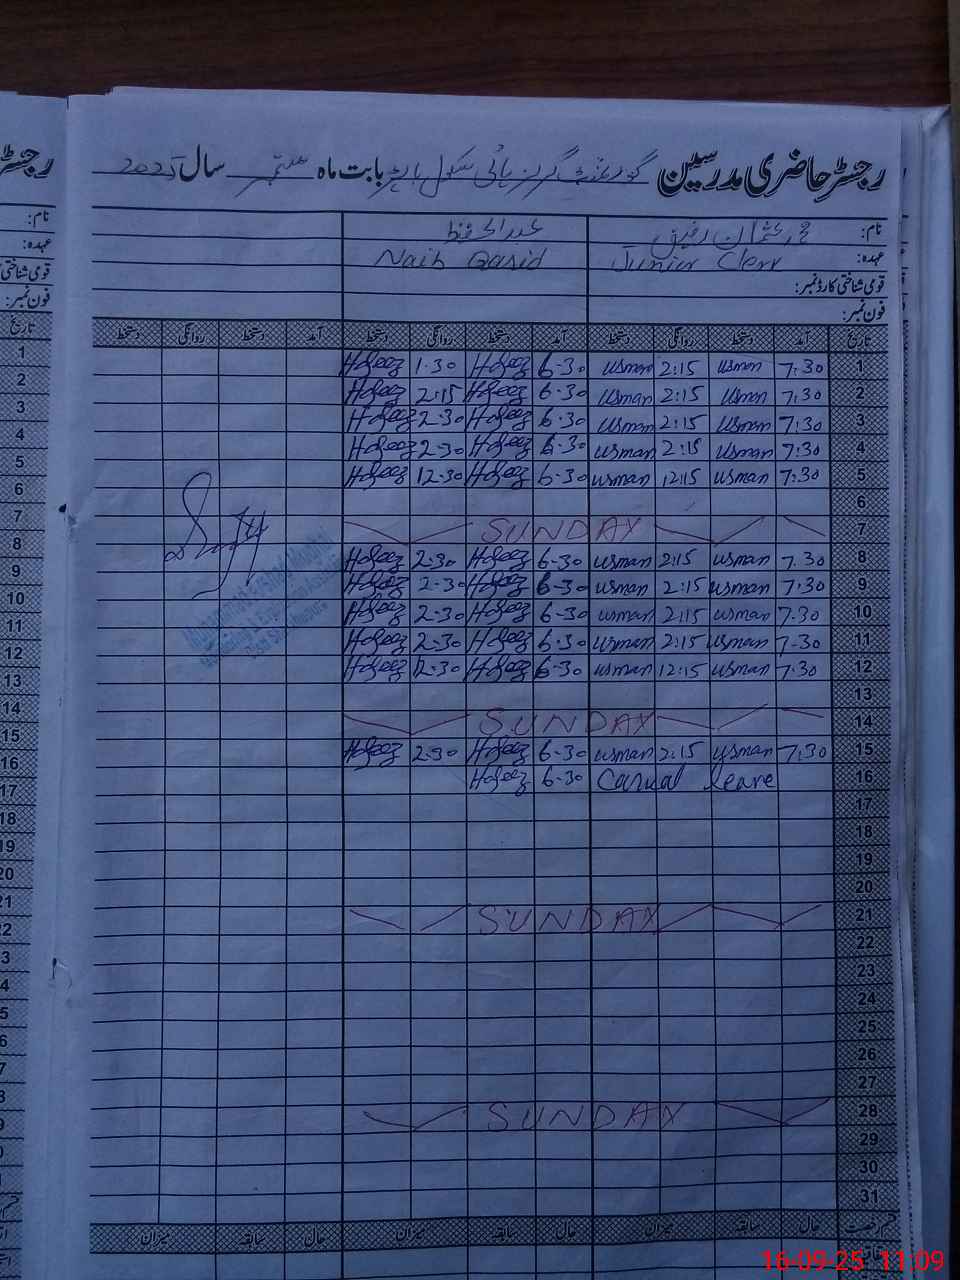 رجسٹر حاضری مدرسین گورنمنٹ گرلز ہائی سکول بابت ماہ ستمبر سال 2025
نام: محمد عثمان رفیق عبدالحفیظ
عہدہ: Junior Clerk Naib Qasid
قومی شناختی کارڈ نمبر:
فون نمبر:
تاریخ آمد دستخط روانگی دستخط آمد دستخط روانگی دستخط آمد دستخط روانگی دستخط
1 7:30 usman 2:15 usman 6-30 Hafeez 1-30 Hafeez
2 7:30 usman 2:15 usman 6-30 Hafeez 2:15 Hafeez
3 7:30 usman 2:15 usman 6-30 Hafeez 2-30 Hafeez
4 7:30 usman 2:15 usman 6-30 Hafeez 2-30 Hafeez
5 7:30 usman 12:15 usman 6-30 Hafeez 12-30 Hafeez
6
7 SUNDAY
8 7.30 usman 2:15 usman 6-30 Hafeez 2-30 Hafeez
9 7:30 usman 2:15 usman 6-30 Hafeez 2-30 Hafeez
10 7.30 usman 2:15 usman 6-30 Hafeez 2-30 Hafeez
11 7-30 usman 2:15 usman 6-30 Hafeez 2-30 Hafeez
12 7.30 usman 12:15 usman 6-30 Hafeez 12-30 Hafeez
13
14 SUNDAY
15 7:30 usman 2:15 usman 6-30 Hafeez 2-30 Hafeez
16 Casual leave 6-30 Hafeez
17
18
19
20
21 SUNDAY
22
23
24
25
26
27
28 SUNDAY
29
30
31
قسم رخصت حال سابقہ میزان حال سابقہ میزان حال سابقہ میزان
Monitoring & Evaluation Assistant
16-09-25 11:09